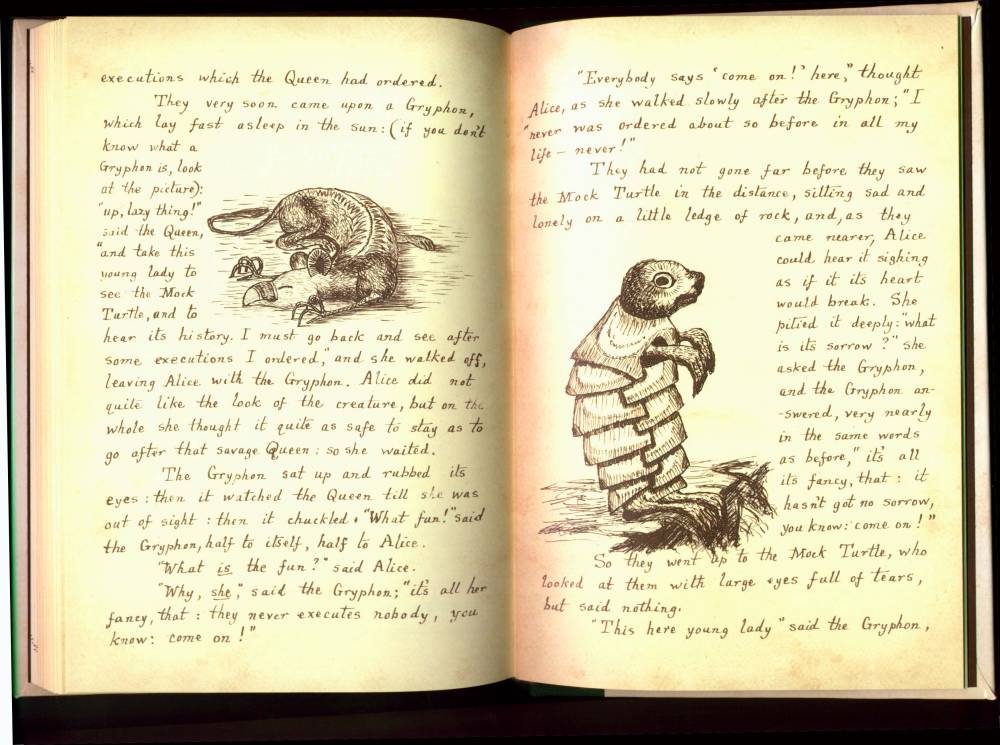 executions which the Queen had ordered.
They very soon came upon a Gryphon,
which lay fast asleep in the sun: (if you don't
know what a
Gryphon is, look
at the picture):
"up, lazy thing!"
said the Queen,
"and take this
young lady to
see the Mock
Turtle, and to
hear its history. I must go back and see after
some executions I ordered," and she walked off,
leaving Alice with the Gryphon. Alice did not
quite like the look of the creature, but on the
whole she thought it quite as safe to stay as to
go after that savage Queen: so she waited.
The Gryphon sat up and rubbed its
eyes: then it watched the Queen till she was
out of sight: then it chuckled. "What fun!" said
the Gryphon, half to itself, half to Alice.
"What is the fun?" said Alice.
"Why, she," said the Gryphon; "it's all her
fancy, that: they never executes nobody, you
know: come on!"
"Everybody says 'come on!' here," thought
Alice, as she walked slowly after the Gryphon; "I
"never was ordered about so before in all my
life — never!"
They had not gone far before they saw
the Mock Turtle in the distance, sitting sad and
lonely on a little ledge of rock, and, as they
came nearer, Alice
could hear it sighing
as if it its heart
would break. She
pitied it deeply: "what
is its sorrow?" she
asked the Gryphon,
and the Gryphon an-
-swered, very nearly
in the same words
as before, "it's all
its fancy, that: it
hasn't got no sorrow,
you know: come on!"
So they went up to the Mock Turtle, who
looked at them with large eyes full of tears,
but said nothing.
"This here young lady" said the Gryphon,